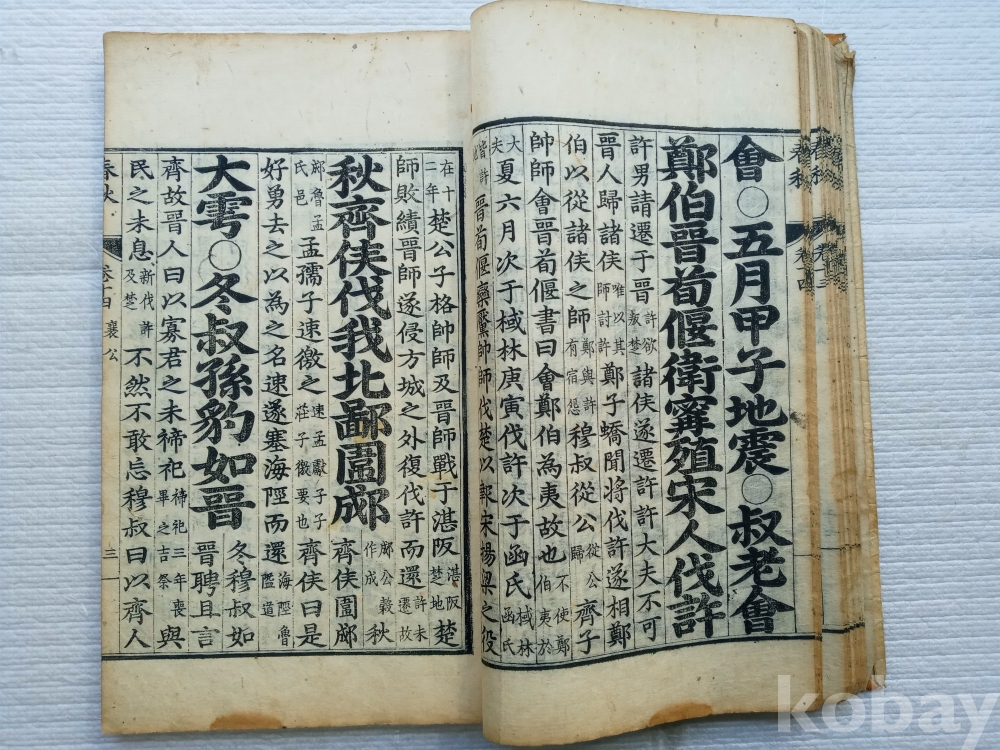 會○五月甲子地震○叔老會
鄭伯晉荀偃衛甯殖宋人伐許
許男請遷于晉許欲叛楚諸侯遂遷許許大夫不可
晉人歸諸侯唯以其師討許鄭子蟜聞將伐許遂相鄭
伯以從諸侯之師鄭與許有宿怨穆叔從公從公歸齊子
帥師會晉荀偃書曰會鄭伯為夷故也不使鄭伯夷於
大夫夏六月次于棫林庚寅伐許次于函氏棫林函氏
皆許地晉荀偃欒黶帥師伐楚以報宋楊梁之役
在十二年楚公子格帥師及晉師戰于湛阪湛阪楚地楚
師敗績晉師遂侵方城之外復伐許而還許未遷故
秋齊侯伐我北鄙圍郕郕公穀作成秋齊侯圍郕
郕魯孟氏邑孟孺子速徼之速孟獻子子莊子徼要也齊侯曰是
好勇去之以為之名速遂塞海陘而還海陘魯隘道
大雩○冬叔孫豹如晉冬穆叔如晉聘且言
齊故晉人曰以寡君之未禘祀禘祀三年喪畢之吉祭與
民之未息新伐許及楚不然不敢忘穆叔曰以齊人
春秋 卷十四 襄公 三
春秋 卷十四
春秋 卷十三
kobay